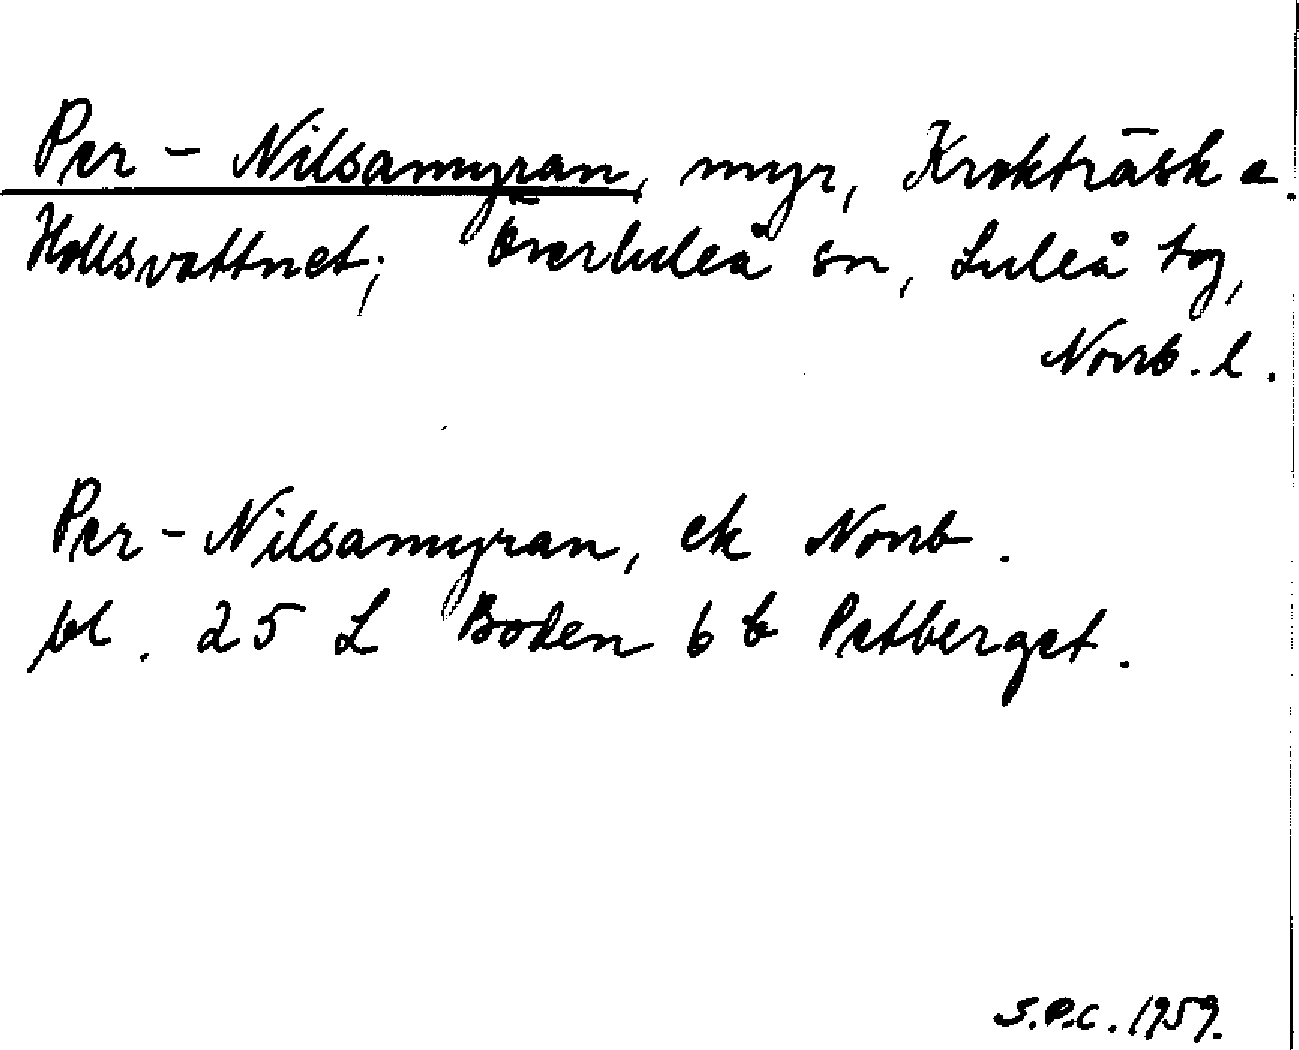 Per - Nilsamyran, myr, Krokträsk o.
Hållsvattnet; Överluleå sn, Luleå tg,
Norrb. l.
Per - Nilsamyran, ek Norrb.
bl. 25 L Boden 6 b Petberget.
S.P.C. 1959.